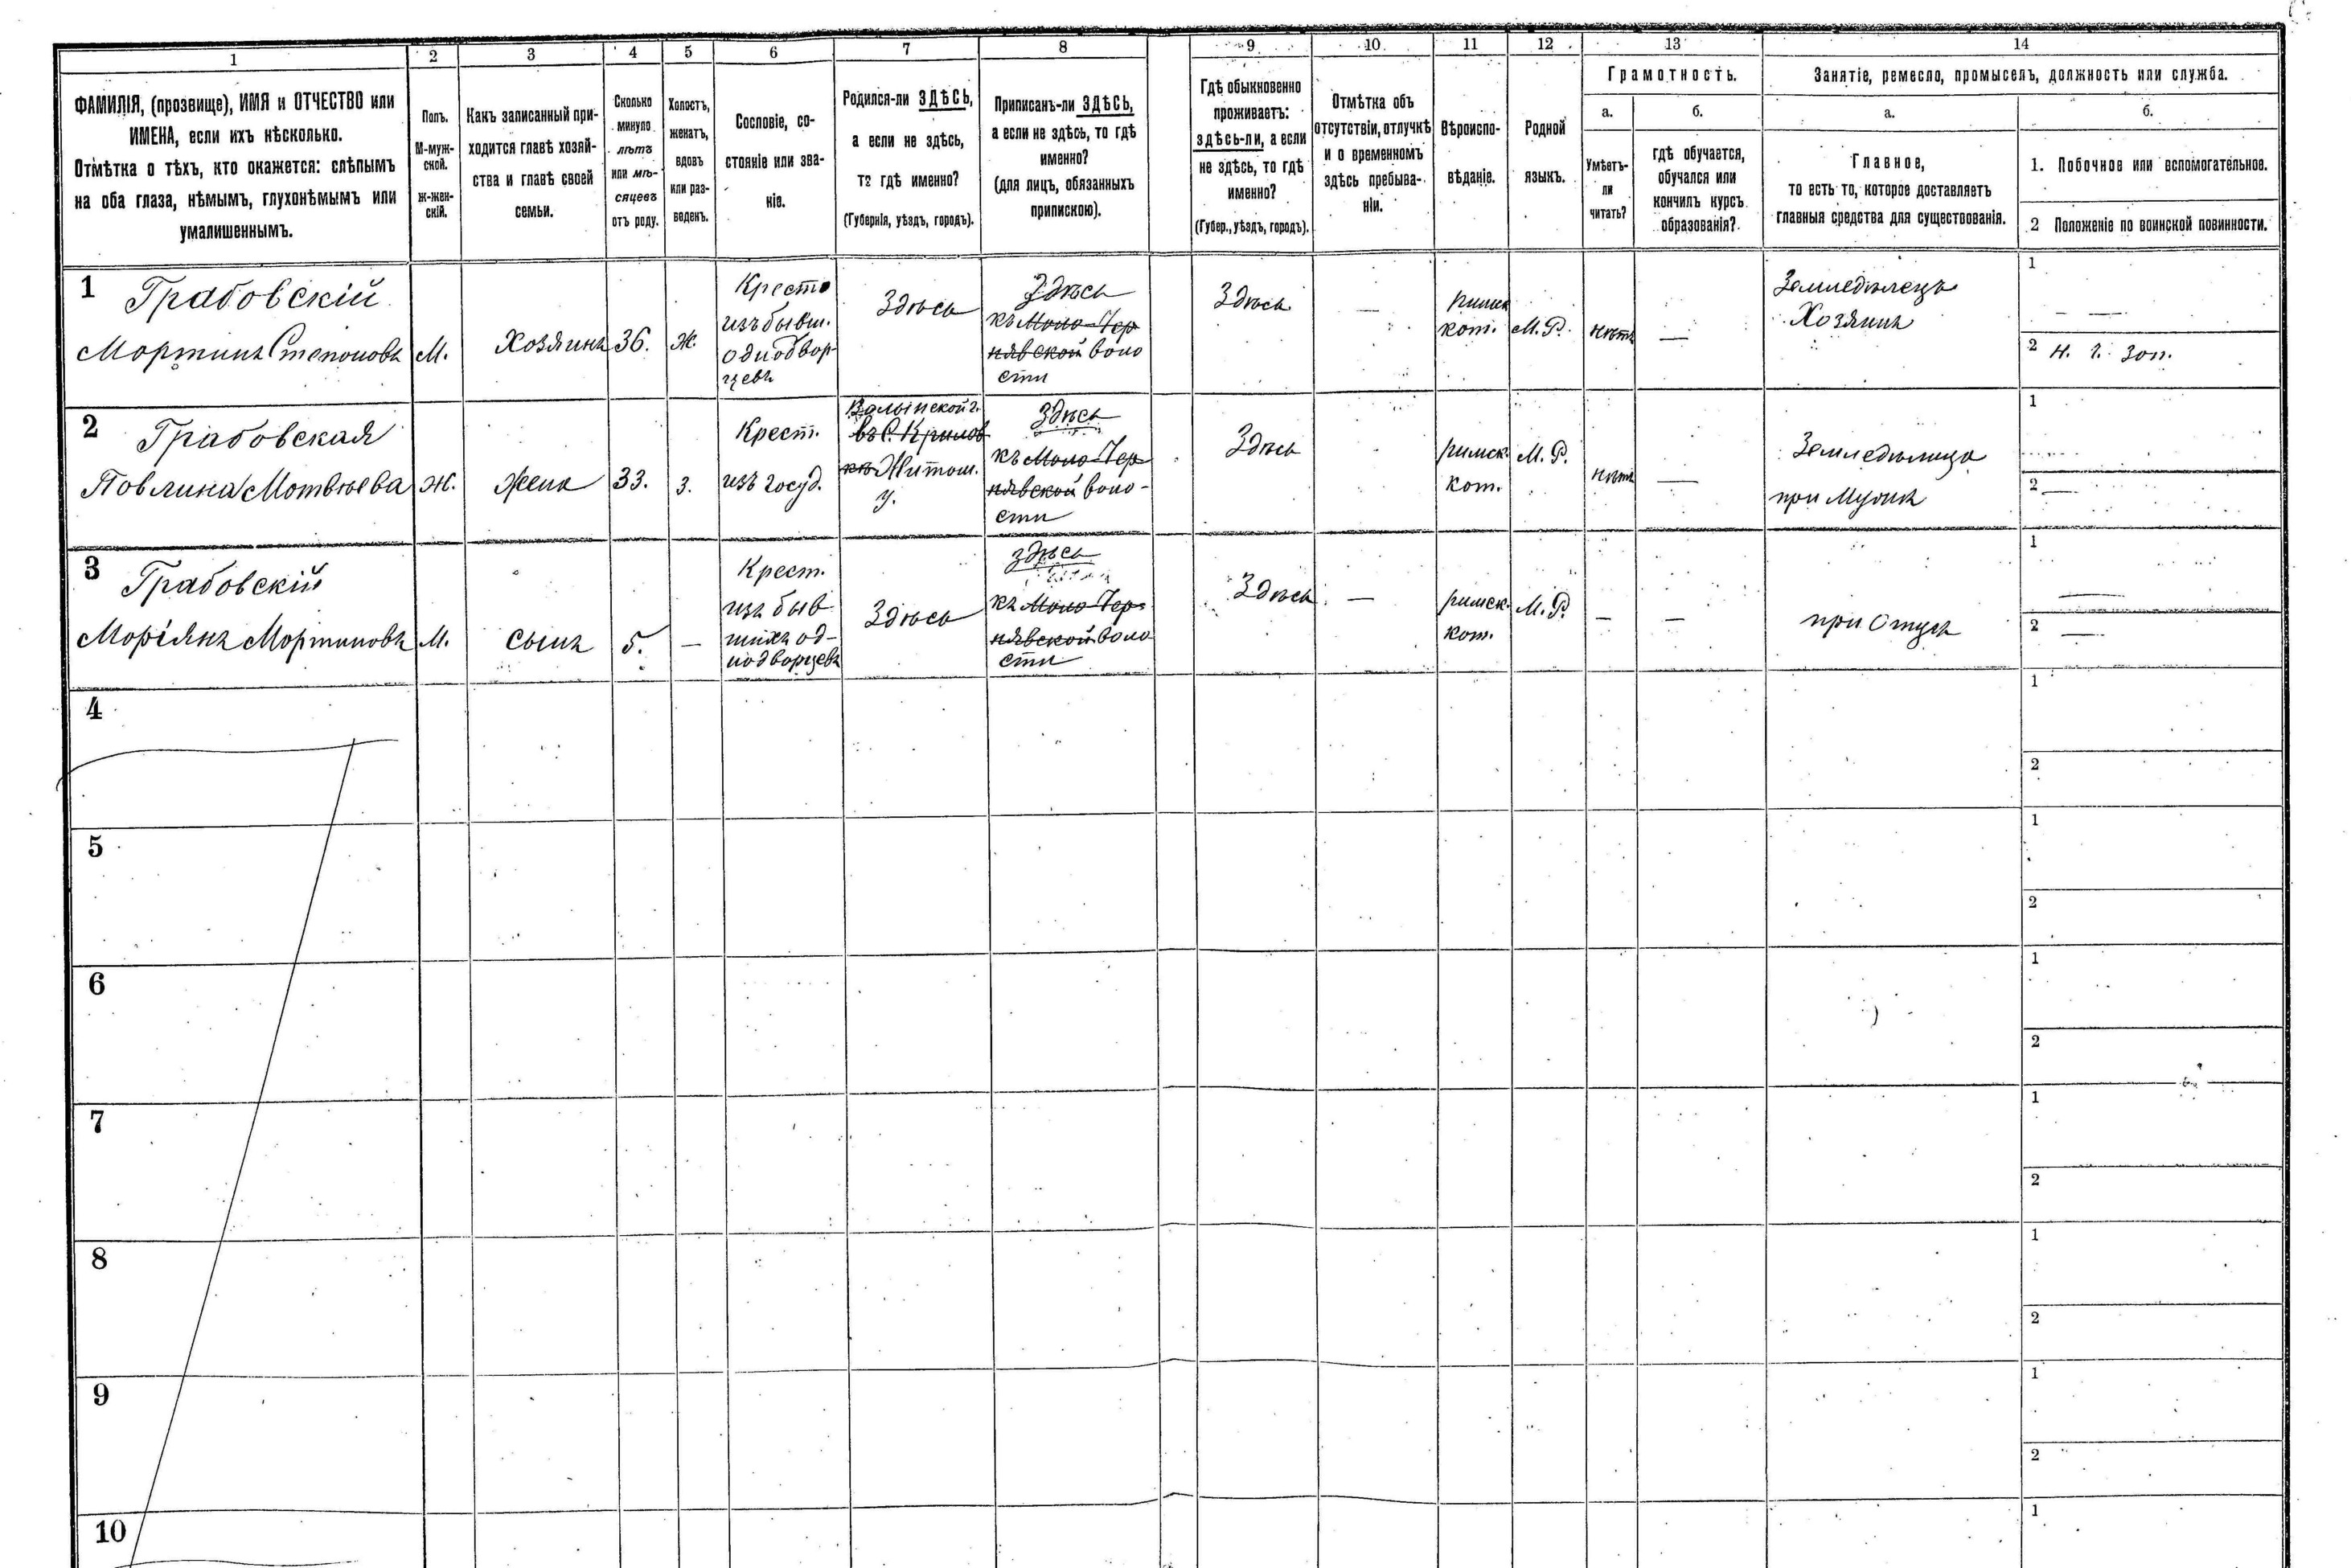 1
2
3
4
5
6
7
8
9
10
11
12
13
14
ФАМИЛІЯ, (прозвище), ИМЯ и ОТЧЕСТВО или
ИМЕНА, если ихъ нѣсколько.
Отмѣтка о тѣхъ, кто окажется: слѣпымъ
на оба глаза, нѣмымъ, глухонѣмымъ или
умалишеннымъ.
Полъ.
М-муж-
ской.
ж-жен-
скій.
Какъ записанный при-
ходится главѣ хозяй-
ства и главѣ своей
семьи.
Сколько
минуло
лѣтъ
или мѣ-
сяцевъ
отъ роду.
Холостъ,
женатъ,
вдовъ
или раз-
веденъ.
Сословіе, со-
стояніе или зва-
ніе.
Родился-ли ЗДѢСЬ,
а если не здѣсь,
то гдѣ именно?
(Губернія, уѣздъ, городъ).
Приписанъ-ли ЗДѢСЬ,
а если не здѣсь, то гдѣ
именно?
(для лицъ, обязанныхъ
припискою).
Гдѣ обыкновенно
проживаетъ:
здѣсь-ли, а если
не здѣсь, то гдѣ
именно?
(Губер., уѣздъ, городъ).
Отмѣтка объ
отсутствіи, отлучкѣ
и о временномъ
здѣсь пребыва-
ніи.
Вѣроиспо-
вѣданіе.
Родной
языкъ.
Грамотность.
а.
Умѣетъ-
ли
читать?
б.
гдѣ обучается,
обучался или
кончилъ курсъ
образованія?
Занятіе, ремесло, промыселъ, должность или служба.
а.
Главное,
то есть то, которое доставляетъ
главныя средства для существованія.
б.
1. Побочное или вспомогательное.
2 Положеніе по воинской повинности.
1 Грабовскій
Мартинъ Степановъ
М.
Хозяинъ
36.
ж.
Крестъ
изъ бывш.
однодвор-
цевъ
Здѣсь
Здѣсь
къ Мало-Чер
нявской воло
сти
Здѣсь
—
римск
кат.
М. Р.
нѣтъ
—
Земледѣлецъ
Хозяинъ
1
— —
2 н. г. зап.
2 Грабовская
Павлина Матвѣева
Ж.
жена
33.
з.
Крест.
изъ госуд.
Валынской г.
въ С. Крилов
кѣ Житом.
у.
Здѣсь
къ Мало-Чер
нявской воло-
сти
Здѣсь
римск.
кат.
М. Р.
нѣтъ
—
Земледѣлица
при Мужѣ
1
2 —
3 Грабовскій
Маріянъ Мартиновъ
М.
сынъ
5.
—
Крест.
изъ быв
шихъ од-
нодворцевъ
Здѣсь
здѣсь
къ Мало-Чер-
нявской воло
сти
Здѣсь
—
римск.
кат.
М. Р.
—
—
при Отцѣ
1
—
2
—
4
1
2
5
1
2
6
1
2
7
1
2
8
1
2
9
1
2
10
1